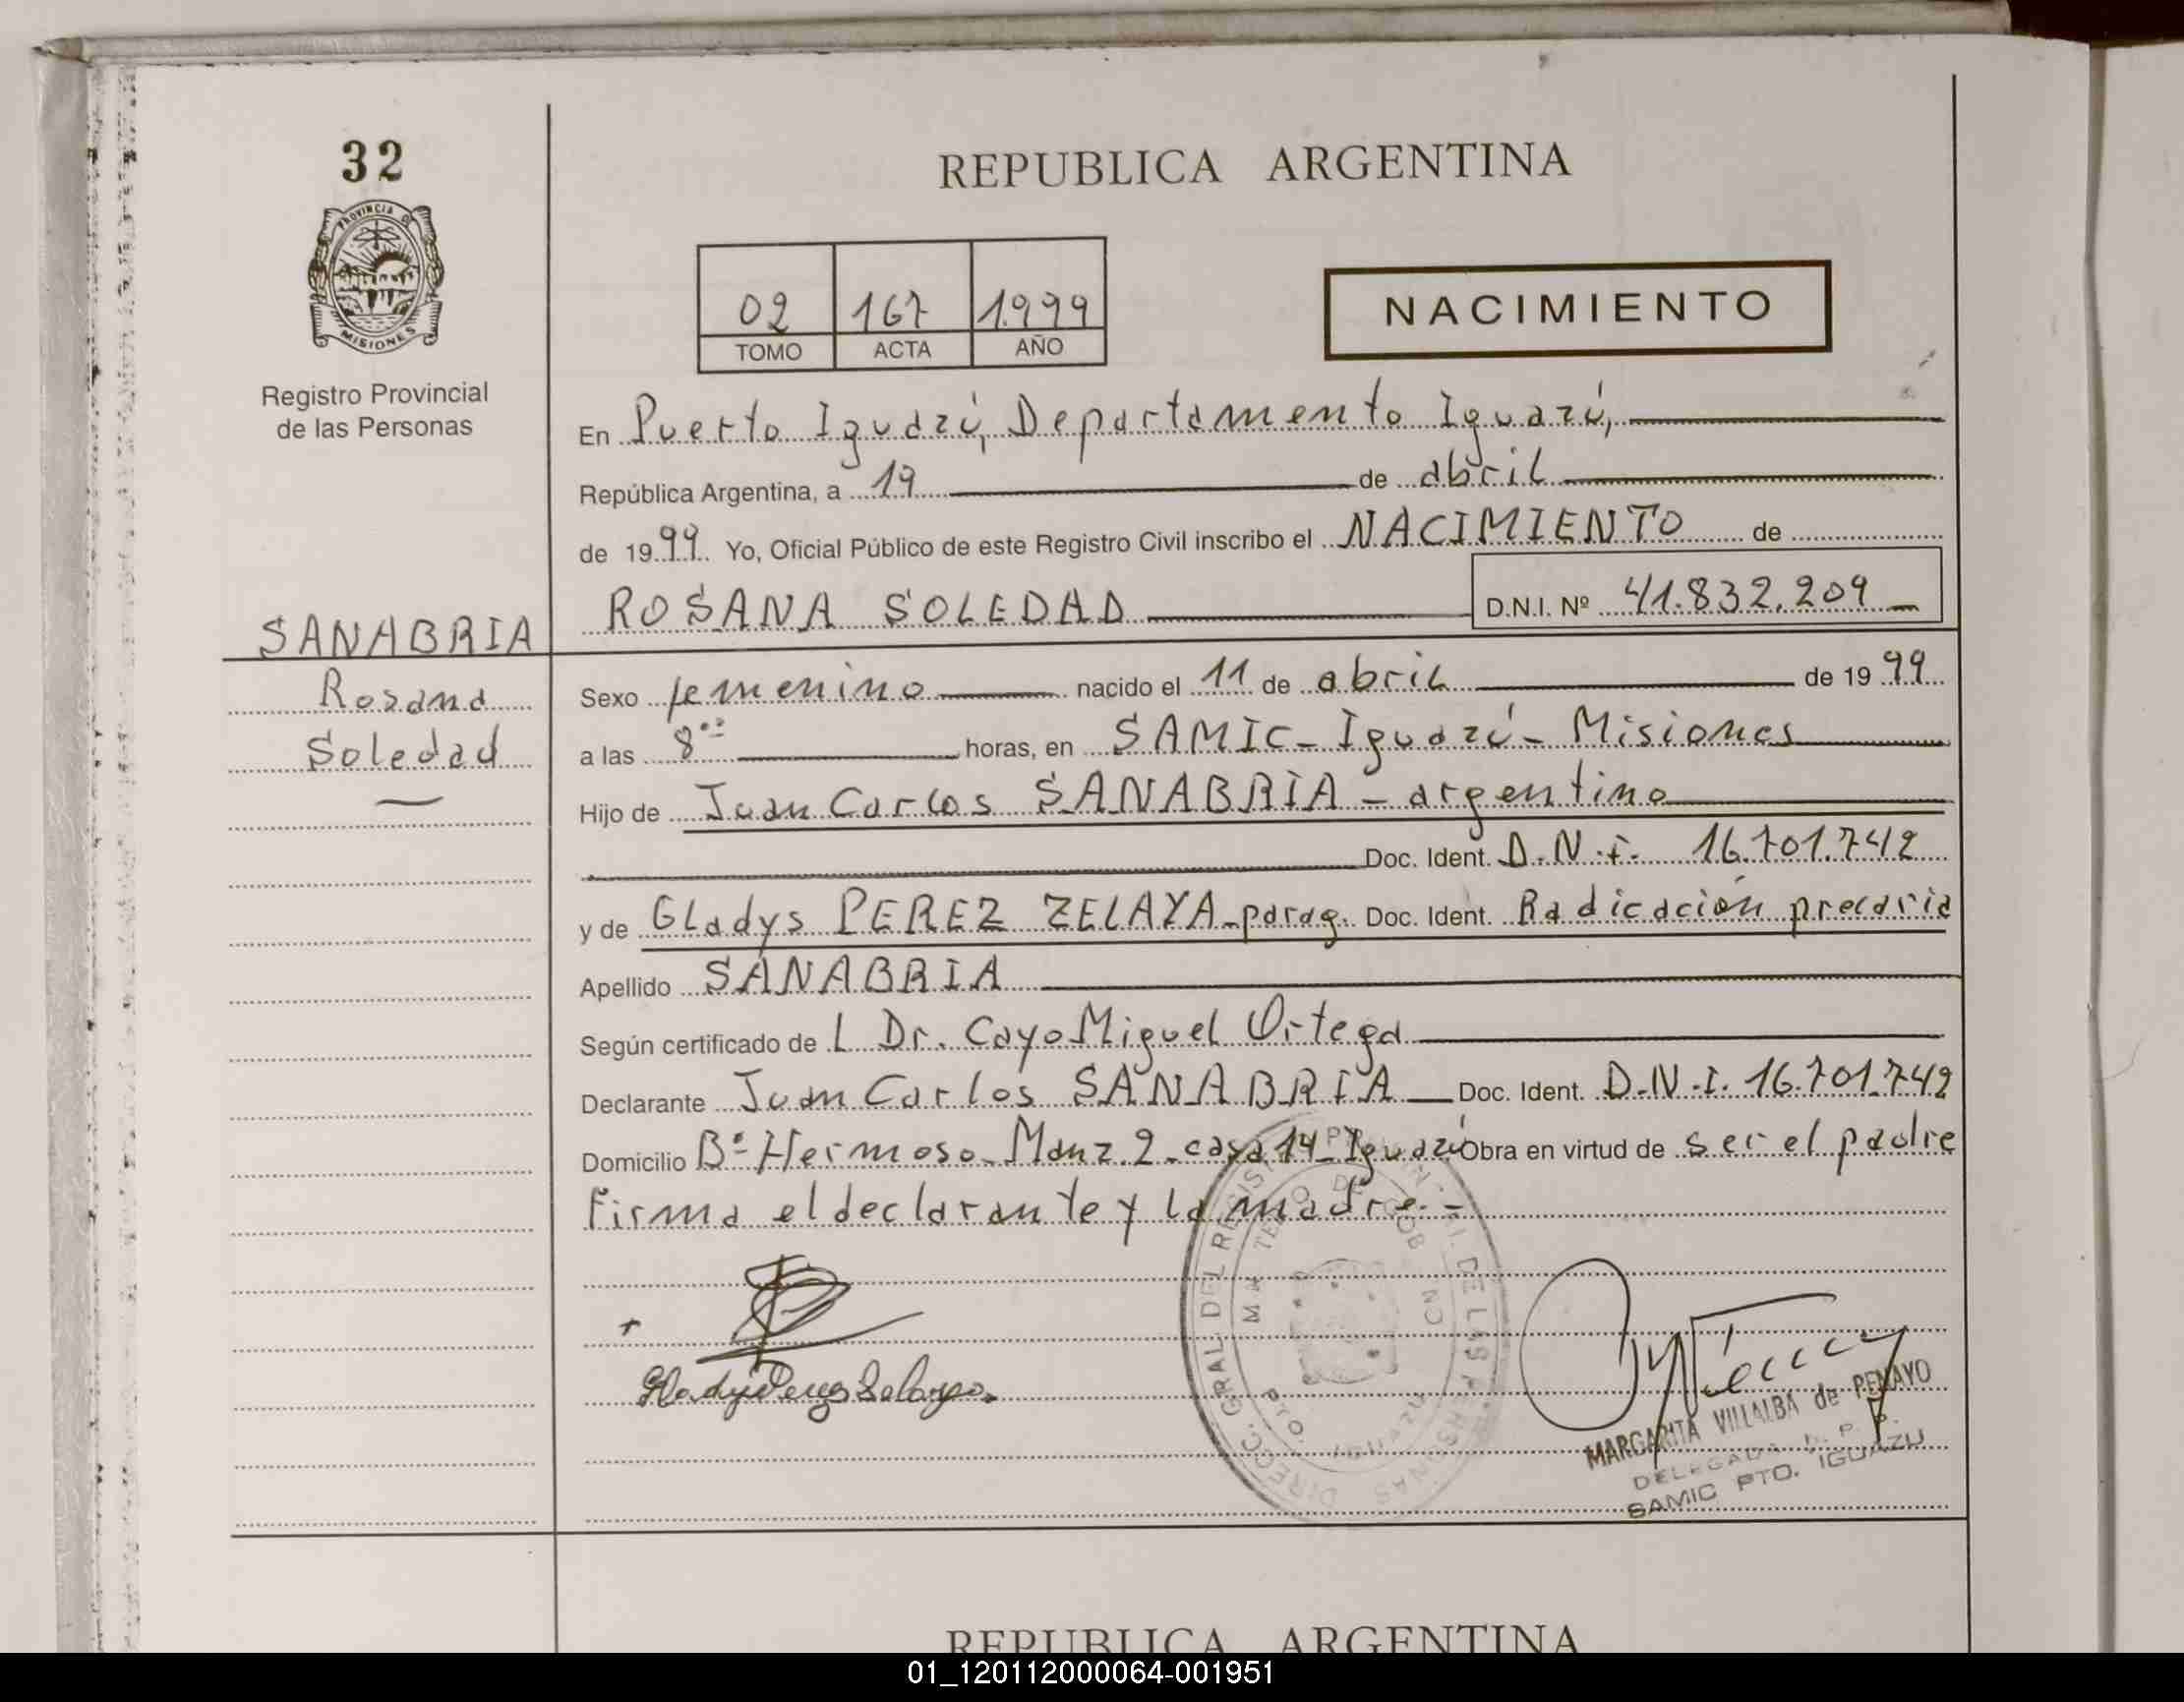 32
PROVINCIA DE
MISIONES
Registro Provincial
de las Personas
SANABRIA
Rosana
Soledad
REPUBLICA ARGENTINA
02 167 1.999
TOMO ACTA AÑO
NACIMIENTO
En Puerto Iguazú, Departamento Iguazú,
República Argentina, a 19 de abril
de 1999 Yo, Oficial Público de este Registro Civil inscribo el NACIMIENTO de
ROSANA SOLEDAD D.N.I. Nº 41.832.209
Sexo femenino nacido el 11 de abril de 1999
a las 8 horas, en SAMIC - Iguazú - Misiones
Hijo de Juan Carlos SANABRIA - argentino
Doc. Ident. D.N.I. 16.701.742
y de Gladys PEREZ ZELAYA - parag. Doc. Ident. Radicación precaria
Apellido SANABRIA
Según certificado de L Dr. Cayo Miguel Ortega
Declarante Juan Carlos SANABRIA Doc. Ident. D.N.I. 16.701.742
Domicilio Bº Hermoso - Manz. 2 - casa 14 - Iguazú Obra en virtud de ser el padre
Firma el declarante y la madre. -
Gladys Perez Zelaya
DIREC. GRAL. DEL REGIST PROVINCIAL DE LAS PERSONAS
PTO. IGUAZU
MARGARITA VILLALBA de PENAYO
DELEGADA R. P. P.
SAMIC PTO. IGUAZU
REPUBLICA ARGENTINA
01_120112000064-001951